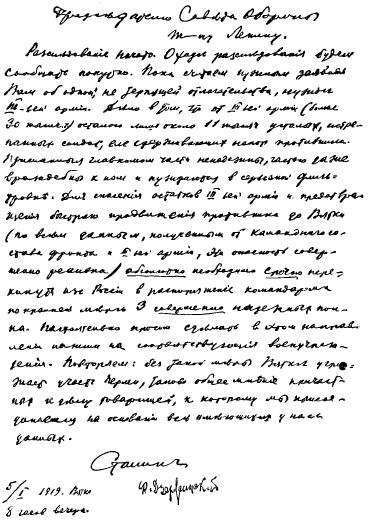 Председателю Совета Обороны
т-щу Ленину.
Расследование начато. О ходе расследования будем
сообщать попутно. Пока считаем нужным заявить
Вам об одной, не терпящей отлагательства, нужде
III-ей армии. Дело в том, что от III-ей армии (более
30 тысяч) осталось лишь около 11 тысяч усталых, истре-
панных солдат, еле сдерживающих напор противника.
Посланные главкомом части ненадежны, частью даже
враждебны к нам и нуждаются в серьезной филь-
тровке. Для спасения остатков III-ей армии и предотвра-
щения быстрого продвижения противника до Вятки
(по всем данным, полученным от командного со-
става фронта и III-ей армии, эта опасность совер-
шенно реальна) абсолютно необходимо срочно пере-
кинуть из России в распоряжение командарма
по крайней мере 3 совершенно надежных пол-
ка. Настоятельно просим сделать в этом направ-
лении нажим на соответствующие военучреж-
дения. Повторяем: без такой меры Вятке угро-
жает участь Перми, таково общее мнение причаст-
ных к делу товарищей, к которому мы присое-
диняемся на основании всех имеющихся у нас
данных.
Сталин
Ф. Дзержинский
5/I 1919. Вятка
8 часов вечера.